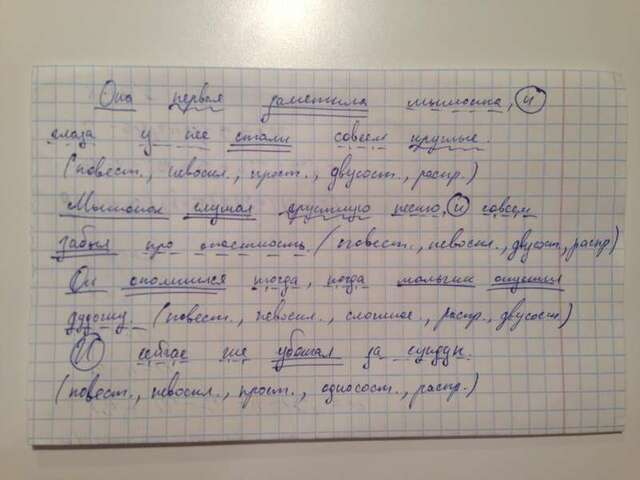 Она первая заметила мышонка, и
глаза у неё стали совсем круглые.
(повест., невоскл., прост., двусост., распр.)
Мышонок слушал грустную песню, и совсем
забыл про опасность. (повест., невоскл., двусост., распр)
Он опомнился тогда, когда мальчик опустил
дудочку. (повест., невоскл., сложное., распр., двусост.)
И сейчас же убежал за сундук.
(повест., невоскл., прост., односост., распр.)